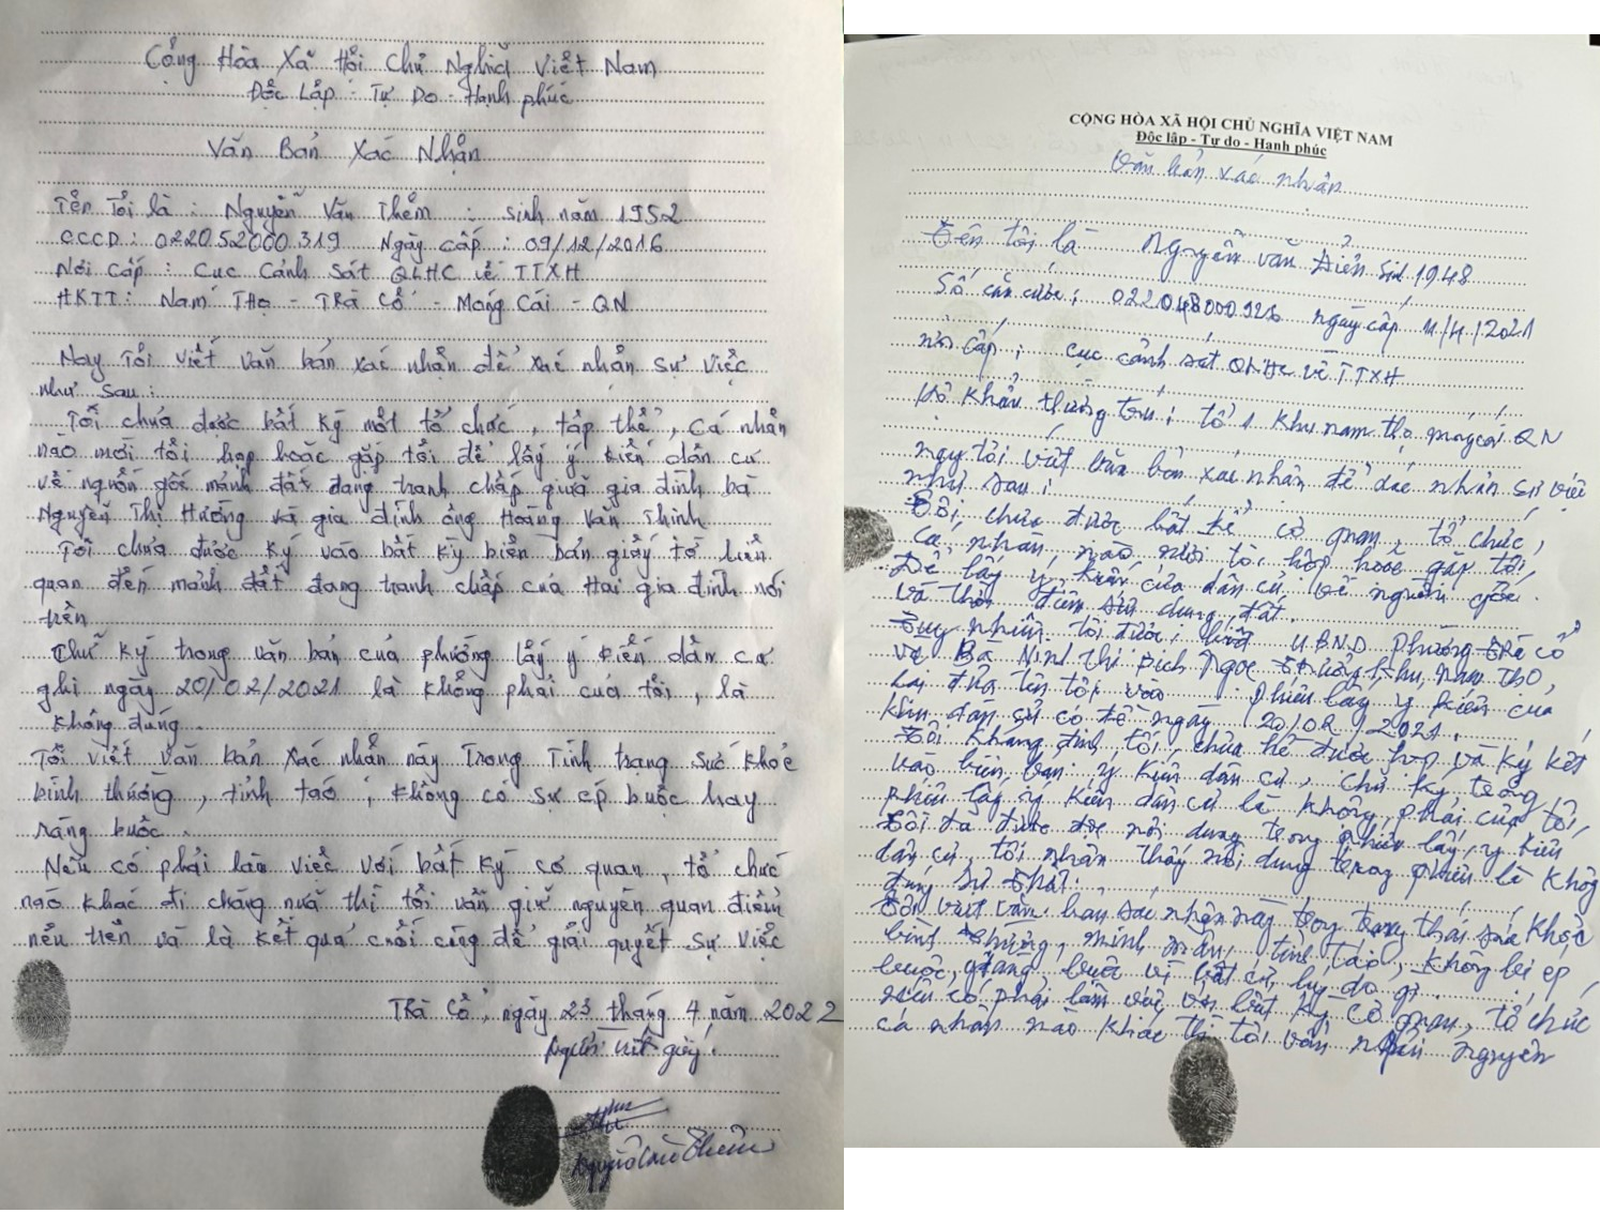 Cộng Hòa Xã Hội Chủ Nghĩa Việt Nam
Độc Lập - Tự Do - Hạnh phúc
Văn Bản Xác Nhận
Tên Tôi là : Nguyễn Văn Thềm : sinh năm 1952
CCCD : 022052000319 Ngày cấp : 09/12/2016
Nơi Cấp : Cục Cảnh Sát QLHC về TTXH
HKTT : Nam Thọ - Trà Cổ - Móng Cái - QN
Nay Tôi viết văn bản xác nhận để xác nhận sự việc
như sau :
Tôi chưa được bất kỳ một tổ chức, tập thể, cá nhân
nào mời tôi họp hoặc gặp tôi để lấy ý kiến dân cư
về nguồn gốc mảnh đất đang tranh chấp giữa gia đình bà
Nguyễn Thị Hương và gia đình ông Hoàng Văn Thinh
Tôi chưa được ký vào bất kỳ biên bản giấy tờ liên
quan đến mảnh đất đang tranh chấp của Hai gia đình nói
trên
Chữ ký trong văn bản của phường lấy ý kiến dân cư
ghi ngày 20/02/2021 là không phải của tôi, là
không đúng.
Tôi viết văn bản xác nhận này Trong Tình trạng sức khỏe
bình thường, tỉnh táo, không có sự ép buộc hay
ràng buộc.
Nếu có phải làm việc với bất kỳ cơ quan, tổ chức
nào khác đi chăng nữa thì tôi vẫn giữ nguyên quan điểm
nêu trên và là kết quả cuối cùng để giải quyết sự việc
Trà Cổ, ngày 23 tháng 4 năm 2022
Người viết giấy.
Nguyễn Văn Thềm
CỘNG HÒA XÃ HỘI CHỦ NGHĨA VIỆT NAM
Độc lập - Tự do - Hạnh phúc
Văn bản xác nhận
Tên tôi là Nguyễn văn Điển Sinh 1948
Số căn cước : 022048000926 ngày cấp 11/4/2021
nơi cấp : cục cảnh sát QLHC về TTXH
Hộ khẩu thường trú : tổ 1 khu nam thọ móng cái QN
nay tôi viết văn bản xác nhận để xác nhận sự việc
như sau :
Tôi chưa được bất kể cơ quan, tổ chức,
cá nhân nào mời tôi họp hoặc gặp tôi
Để lấy ý kiến của dân cư về nguồn gốc
và thời điểm sử dụng đất.
Tuy nhiên tôi được biết U.B.N.D Phường Trà cổ
và Bà Ninh thị Bích Ngọc trưởng khu Nam Thọ,
đưa tên tôi vào phiếu lấy ý kiến của
khu dân cư có đề ngày 20/02/2021.
Tôi khẳng định tôi chưa hề được họp và ký kết
vào biên bản ý kiến dân cư, chữ ký trong
phiếu lấy ý kiến dân cư là không phải của tôi,
Tôi đã được đọc nội dung trong phiếu lấy ý kiến
dân cư, tôi nhận thấy nội dung trong phiếu là không
đúng sự thật.
Tôi viết văn bản xác nhận này trong trạng thái sức khỏe
bình thường, minh mẫn, tỉnh táo, không bị ép
buộc, giàng buộc vì bất cứ lý do gì.
nếu có phải làm việc với bất kỳ cơ quan, tổ chức
cá nhân nào khác thì tôi vẫn nguyên